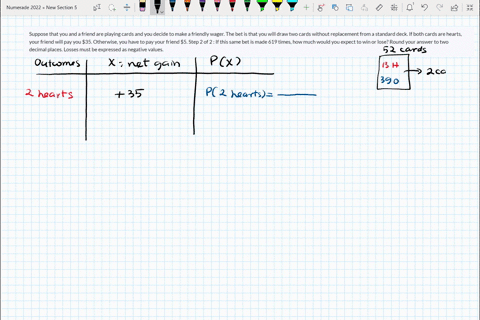 Numerade 2022 » New Section 5
Suppose that you and a friend are playing cards and you decide to make a friendly wager. The bet is that you will draw two cards without replacement from a standard deck. If both cards are hearts,
your friend will pay you $35. Otherwise, you have to pay your friend $5. Step 2 of 2 : If this same bet is made 619 times, how much would you expect to win or lose? Round your answer to two
decimal places. Losses must be expressed as negative values.
52 cards
Outcomes X: net gain P(X)
13 H
39 O → 2 ca
2 hearts +35 P(2 hearts) =